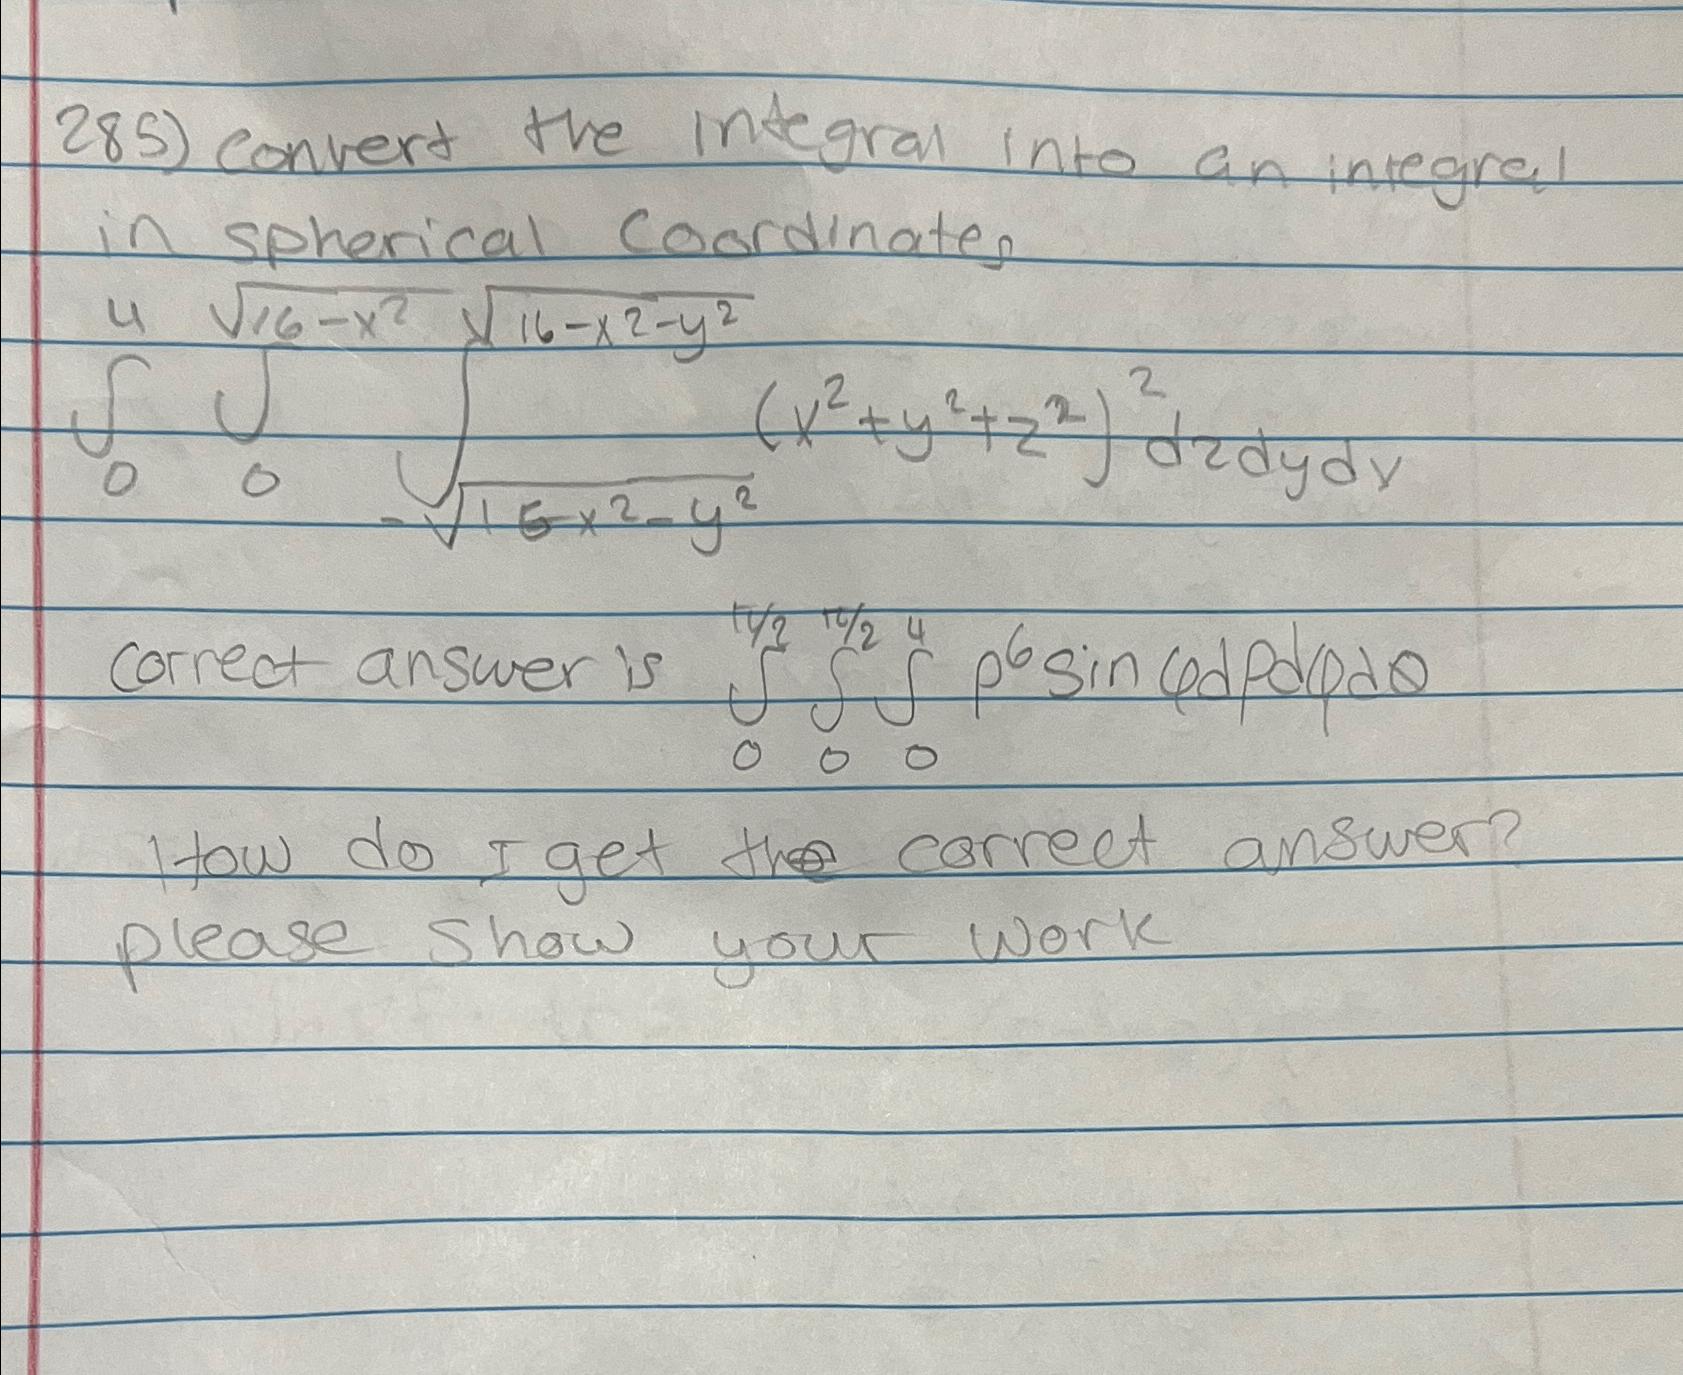 285) convert the integral into an integral
in spherical coordinates
4 √16-x² √16-x²-y²
∫ ∫ ∫ (x²+y²+z²)² dzdydx
0 0 -√16-x²-y²
correct answer is π/2 π/2 4 ∫ ∫ ∫ ρ⁶ sin φdρdφdθ
0 0 0
How do I get the correct answer?
please show your work